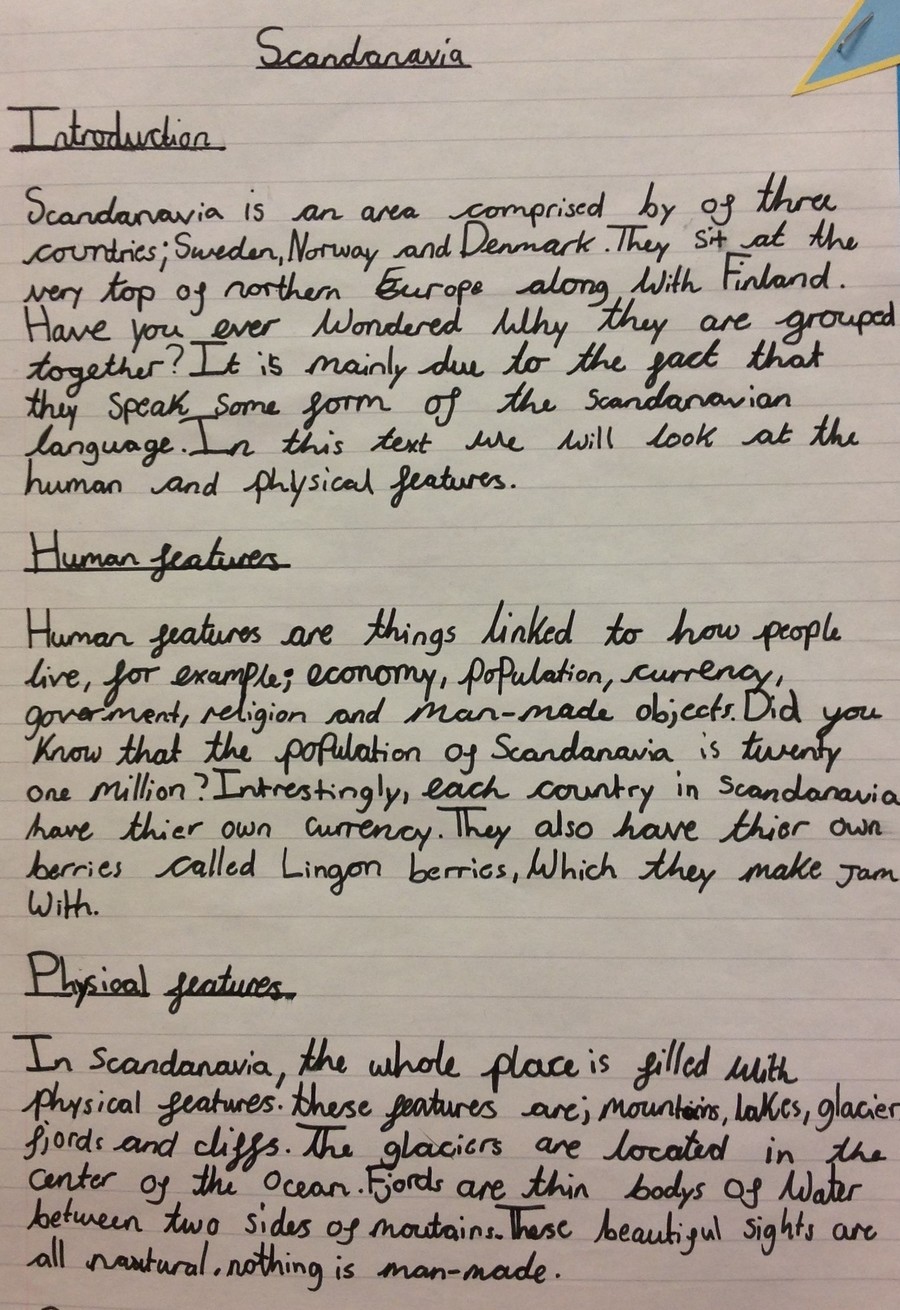 Scandanavia
Introduction
Scandanavia is an area comprised by of three
countries; Sweden, Norway and Denmark. They sit at the
very top of northern Europe along With Finland.
Have you ever Wondered Why they are grouped
together? It is mainly due to the fact that
they speak some form of the scandanavian
language. In this text we will look at the
human and physical features.
Human features
Human features are things linked to how people
live, for example; economy, population, currency,
goverment, religion and man-made objects. Did you
Know that the population of Scandanavia is twenty
one million? Intrestingly, each country in Scandanavia
have thier own currency. They also have thier own
berries called Lingon berries, Which they make Jam
With.
Physical features
In Scandanavia, the whole place is filled with
physical features. these features are; mountains, lakes, glacier
fjords and cliffs. The glaciers are located in the
center of the Ocean. Fjords are thin bodys of Water
between two sides of moutains. These beautiful sights are
all nautural, nothing is man-made.